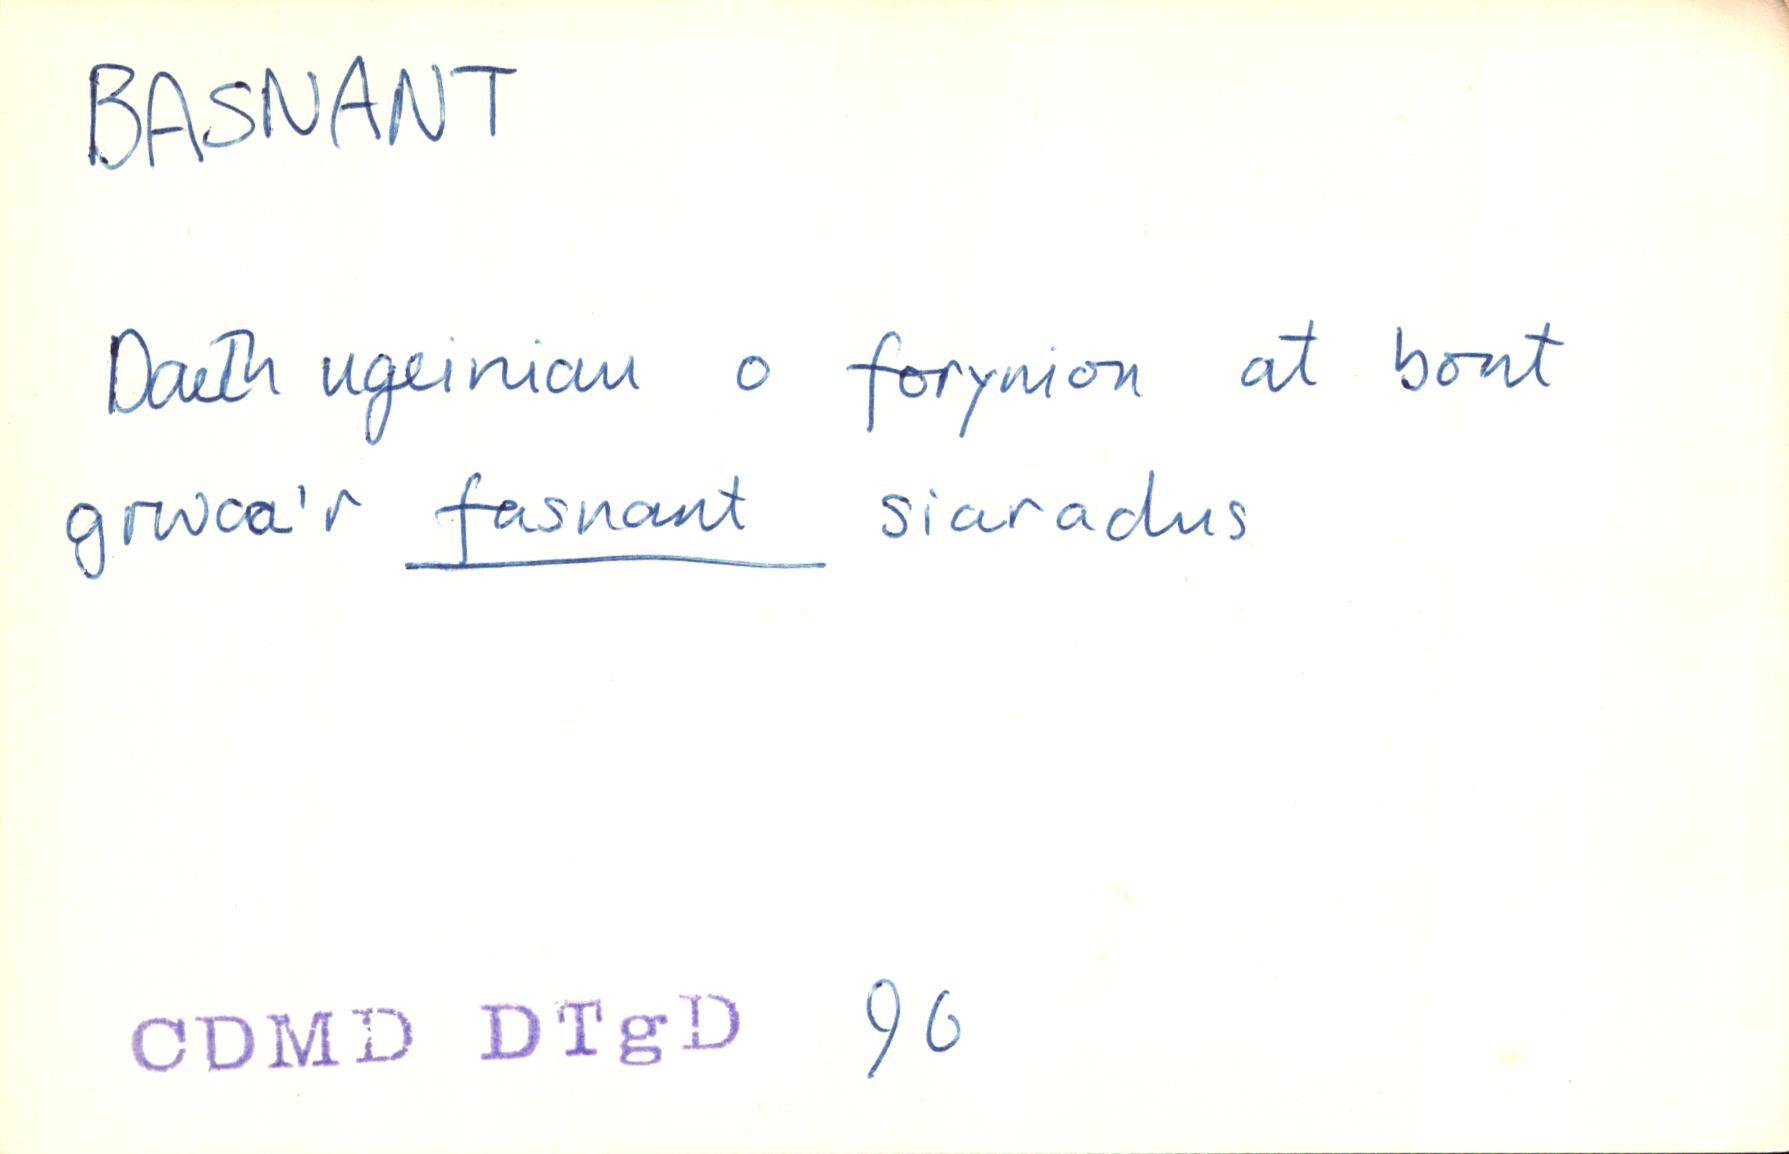 BASNANT
Daeth ugeiniau o forynion at bont
grwca'r fasnant siaradus
CDMD DTgD 96